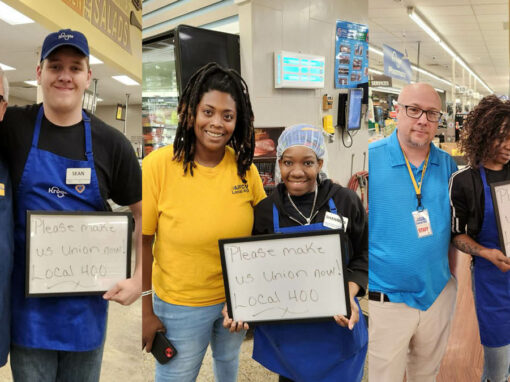 SALADS
Kroger
SEAN
Kroger
Please make
us Union now!
Local 400
UFCW
LOCAL 400
Please make
us Union now!
Local 400
STAFF